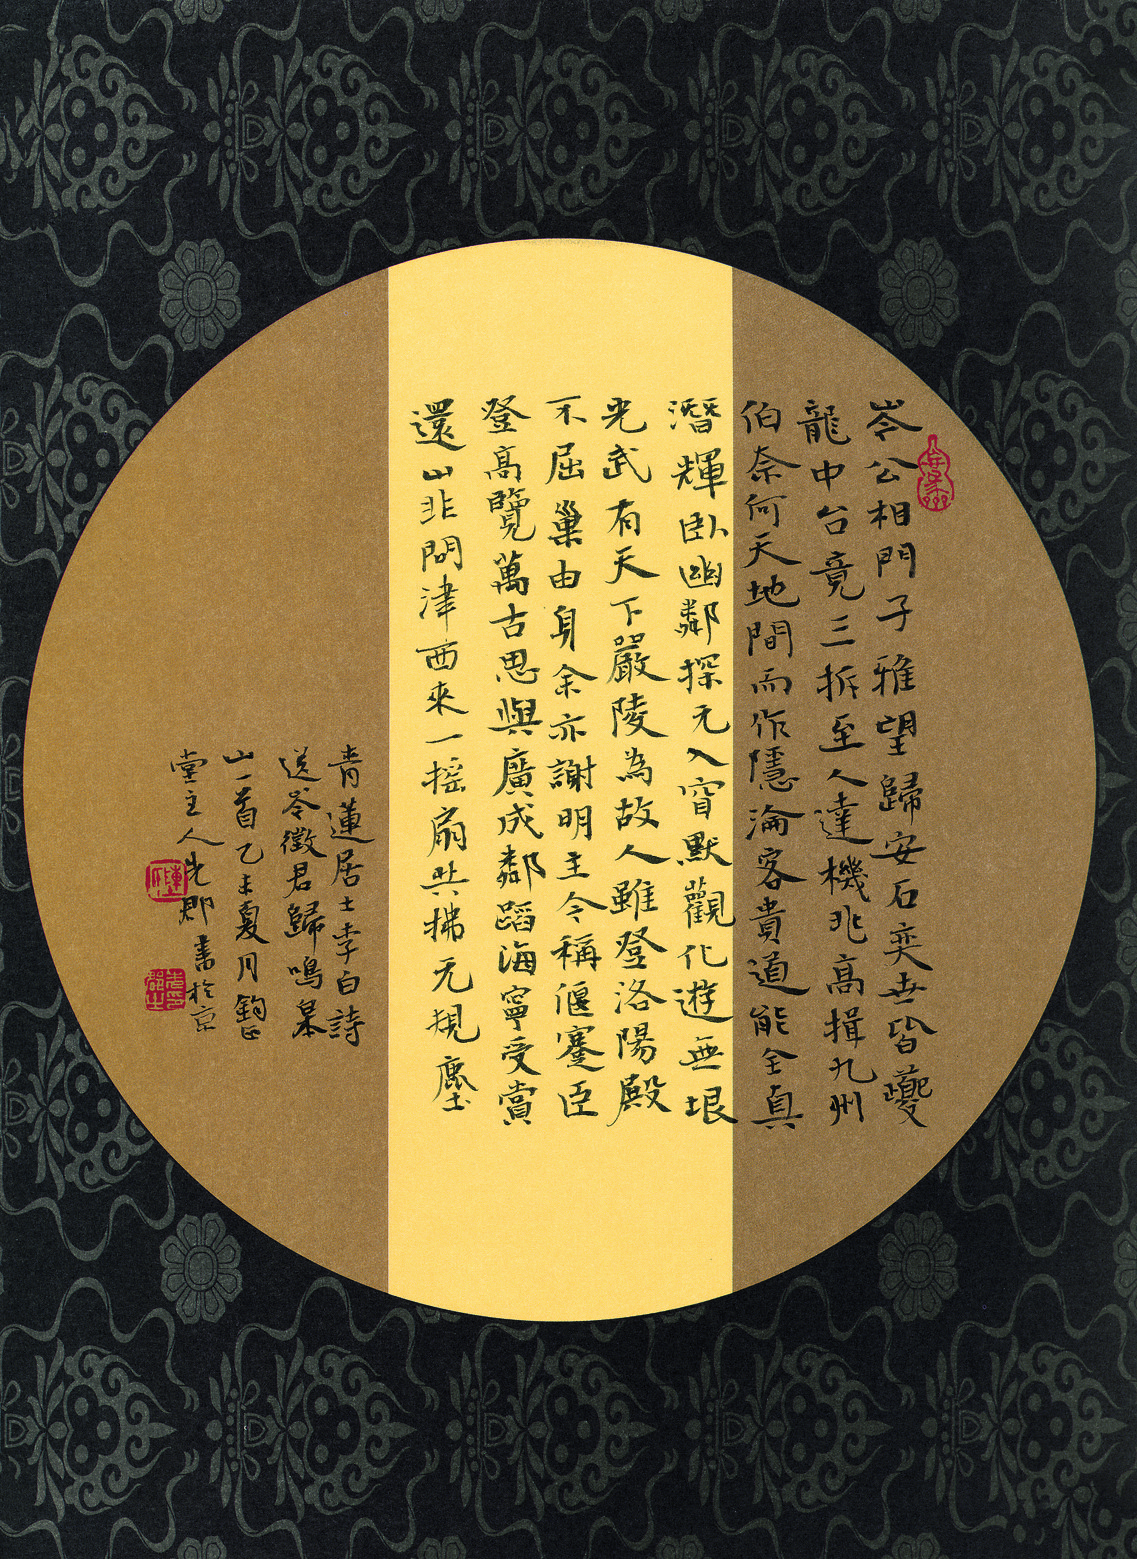 岑公相門子雅望歸安石奕世皆夔
龍中台竟三拆至人達機兆高揖九州
伯奈何天地間而作隱淪客貴道能全真
潛輝臥幽鄰探元入窅默觀化遊無垠
光武有天下嚴陵為故人雖登洛陽殿
不屈巢由身余亦謝明主今稱偃蹇臣
登高覽萬古思與廣成鄰蹈海寧受賞
還山非問津西來一搖扇共拂元規塵
青蓮居士李白詩
送岑徵君歸鳴皋
山一首乙未夏月鈞
堂主人先郡書於京